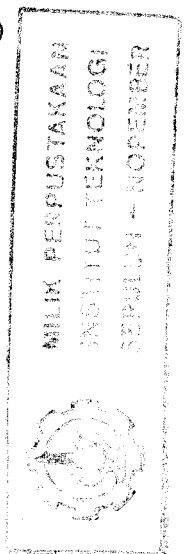 MILIK PERPUSTAKAAN
INSTITUT TEKNOLOGI
SEPULUH – NOPEMBER